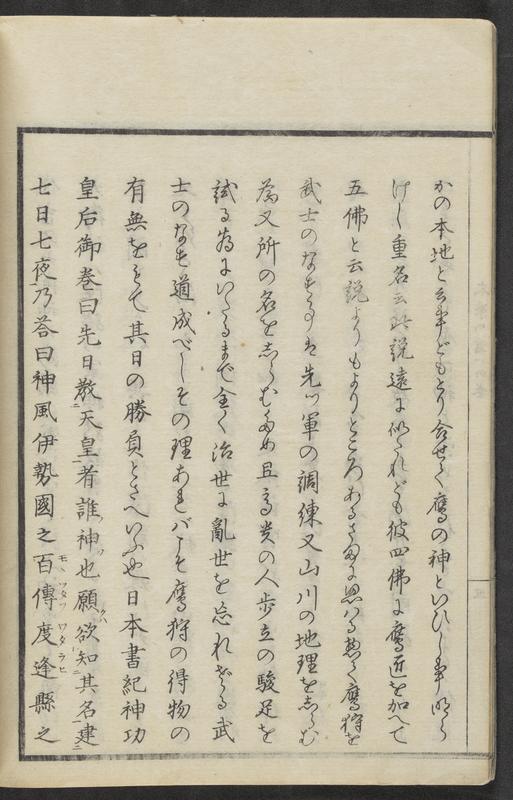 かの本地と云事どもとり合せて鷹の神といひし事明ら
けし重名云此説遠に似たれども彼四佛に鷹匠を加へて
五佛と云説よりもよりところあるさまに思はる惣て鷹狩を
武士のなすことは先ツ軍の調練又山川の地理をしらむ
為又所の名をしらむため且高貴の人歩立の駿足を
試る為にいたるまで全く治世に亂世を忘れざる武
士のなす道成べしその理あればこそ鷹狩の得物の
有無をもて其日の勝負とさへいふ也日本書紀神功
皇后御巻曰先日教ニ天皇一者誰神ソ也願欲クハ知ニ其名一逮ニ
七日七夜一乃答曰神風伊勢國之百モヽ傳ツタフ度ワタ逢ラヒ縣之